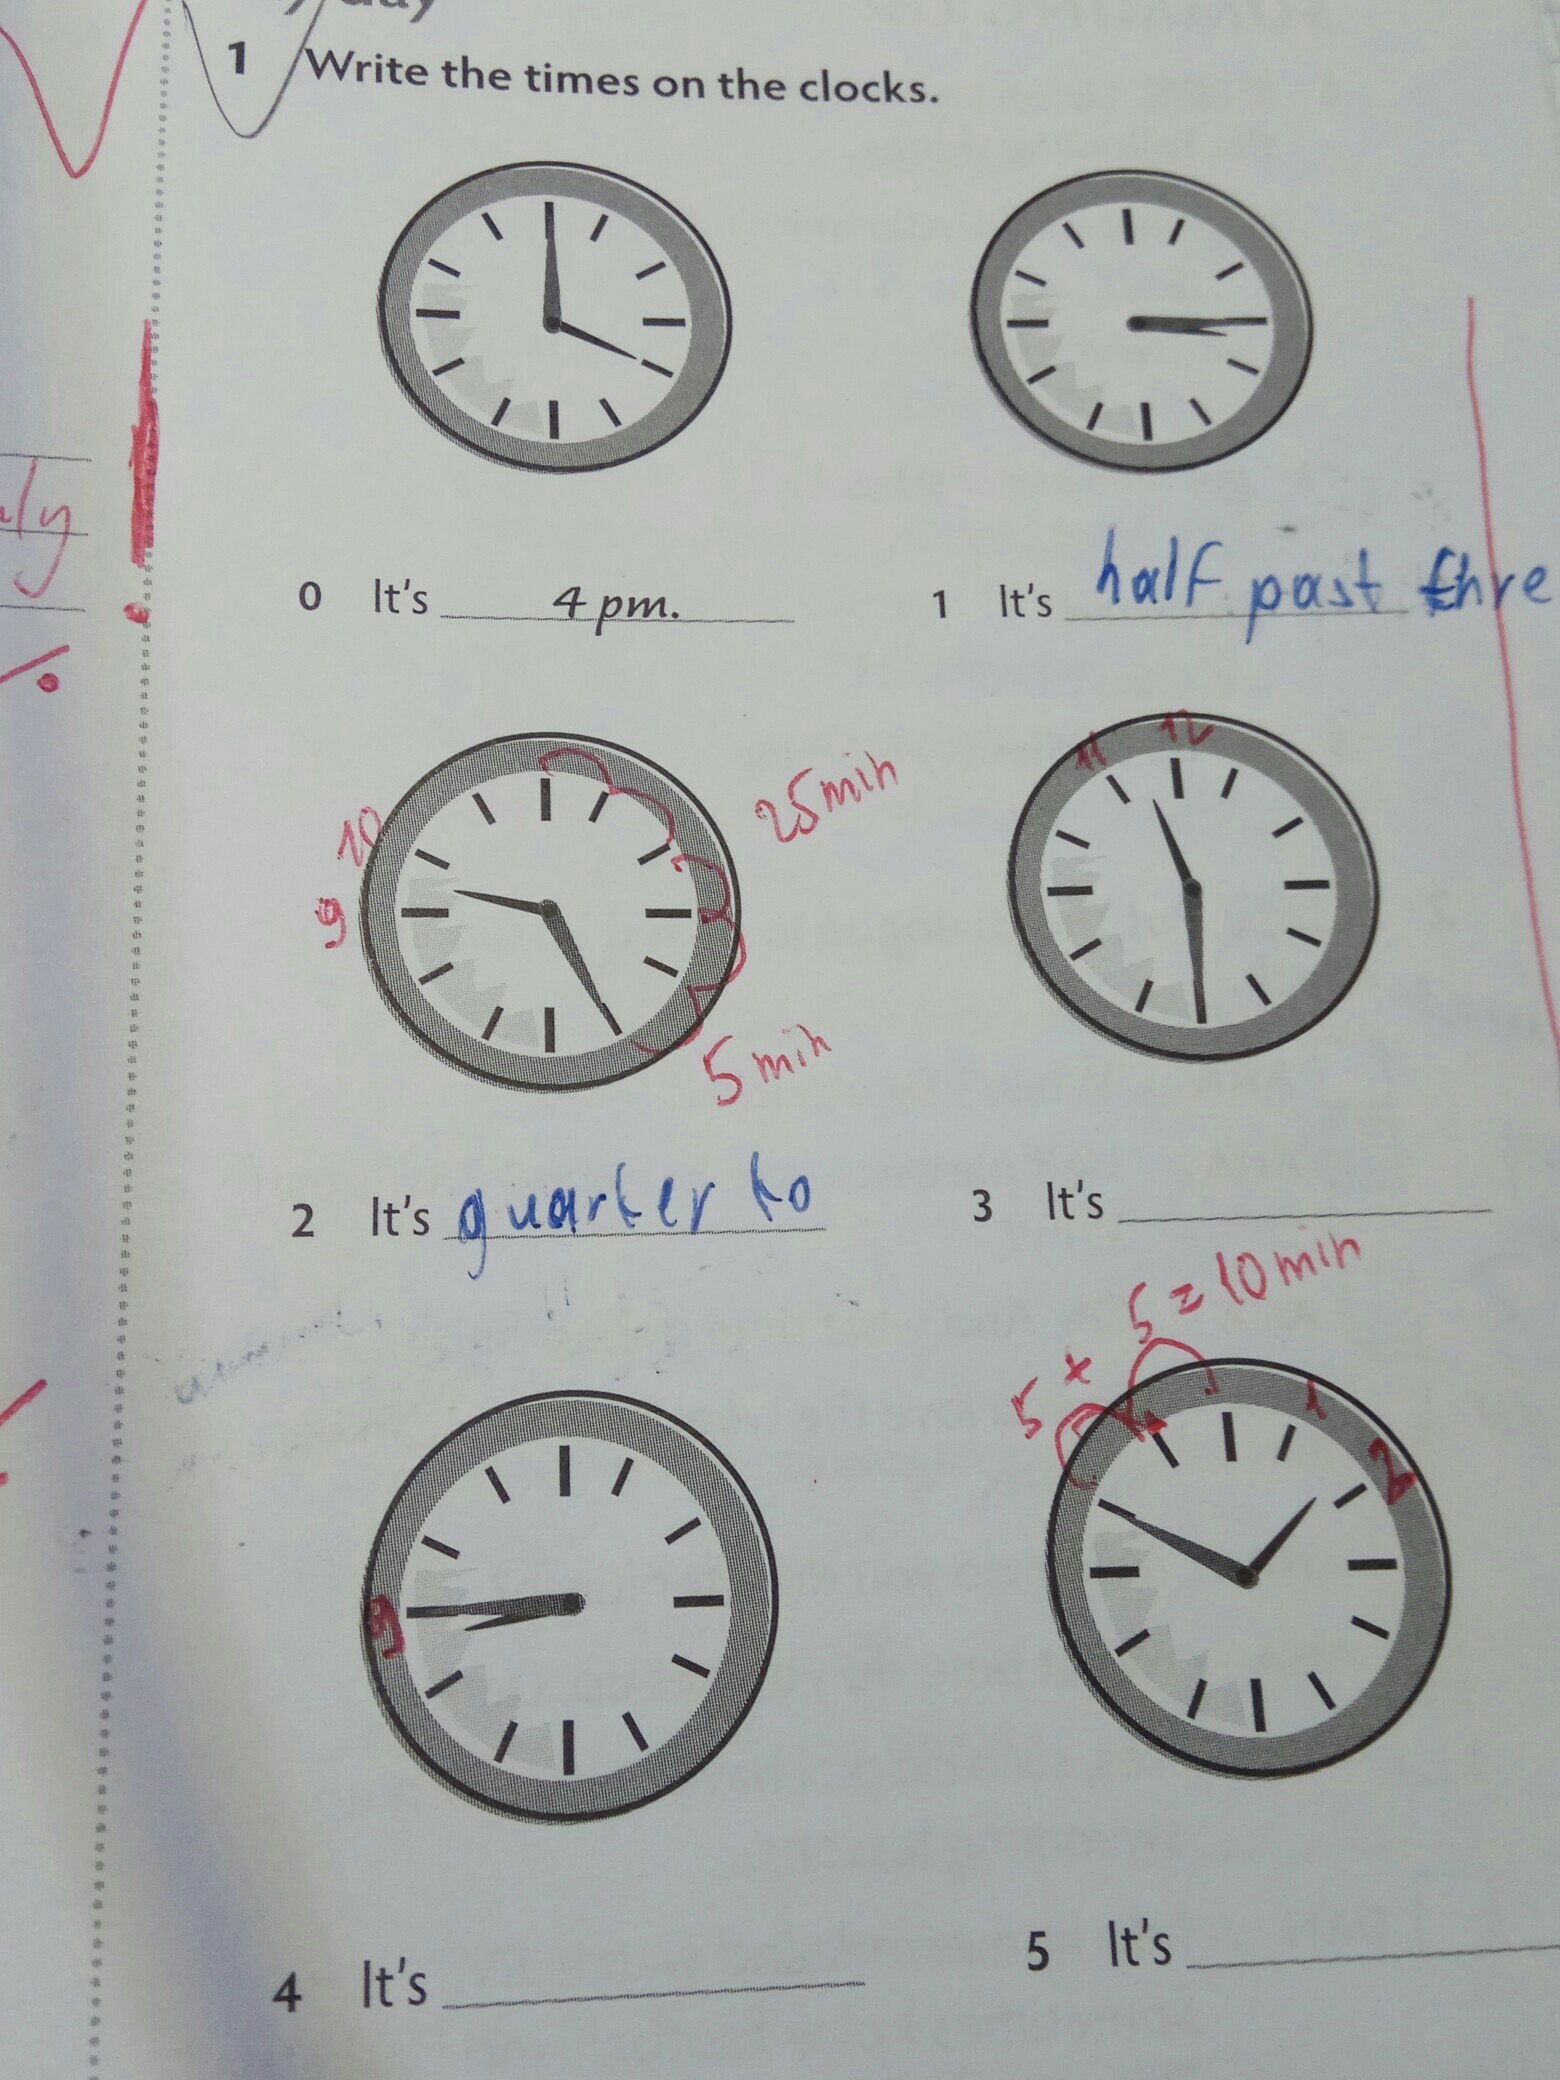 day
1 Write the times on the clocks.
0 It's 4 pm.
1 It's half past thre
25 min
10
9
5 min
11 12
2 It's quarter to
3 It's
5 x 5 = 10 min
1
2
9
4 It's
5 It's